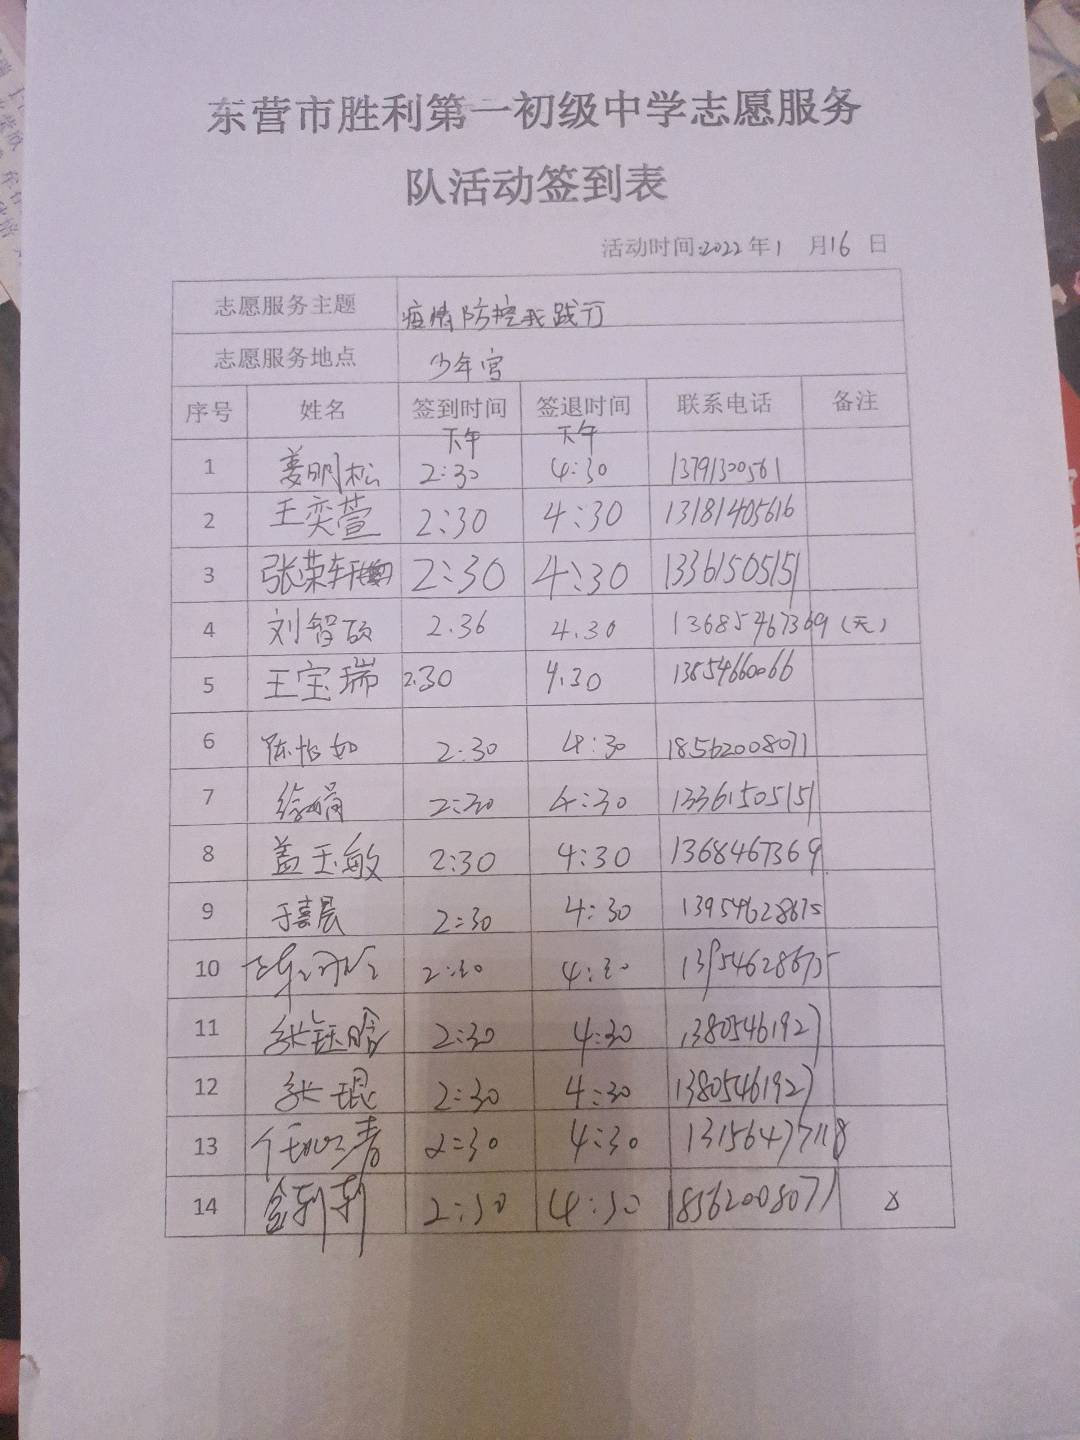 东营市胜利第一初级中学志愿服务
队活动签到表
活动时间:2022年1月16日
志愿服务主题 疫情防控我践行
志愿服务地点 少年宫
序号 姓名 签到时间 签退时间 联系电话 备注
下午 下午
1 姜明松 2:30 4:30 13791300561
2 王奕萱 2:30 4:30 13181405616
3 张荣轩 2:30 4:30 13361505151
4 刘智硕 2.36 4.30 13685467369 (无)
5 王宝瑞 2:30 4.30 13854660066
6 陈怡如 2:30 4:30 18562008071
7 徐娟 2:30 4:30 13361505151
8 盖玉敏 2:30 4:30 1368467369
9 于喜晨 2:30 4:30 13954628675
10 2:30 4:30 13954628675
11 张钰晗 2:30 4:30 13805461927
12 张琨 2:30 4:30 13805461927
13 2:30 4:30 13156477118
14 2:30 4:30 18562008071